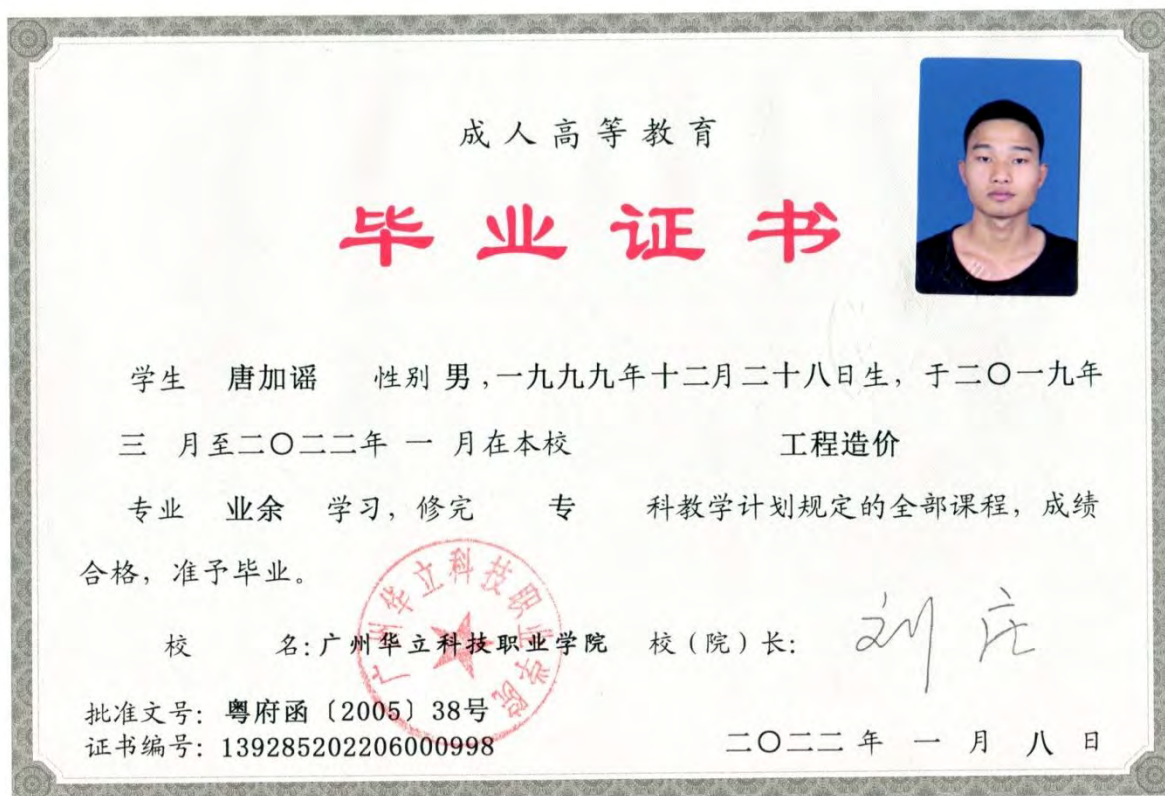 成人高等教育
毕业证书
学生 唐加谣 性别 男，一九九九年十二月二十八日生，于二〇一九年
三 月至二〇二二年 一 月在本校 工程造价
专业 业余 学习，修完 专 科教学计划规定的全部课程，成绩
合格，准予毕业。
广州华立科技职业学院
校 名：广州华立科技职业学院 校（院）长：刘庄
批准文号：粤府函〔2005〕38号
证书编号：139285202206000998
二〇二二 年 一 月 八 日